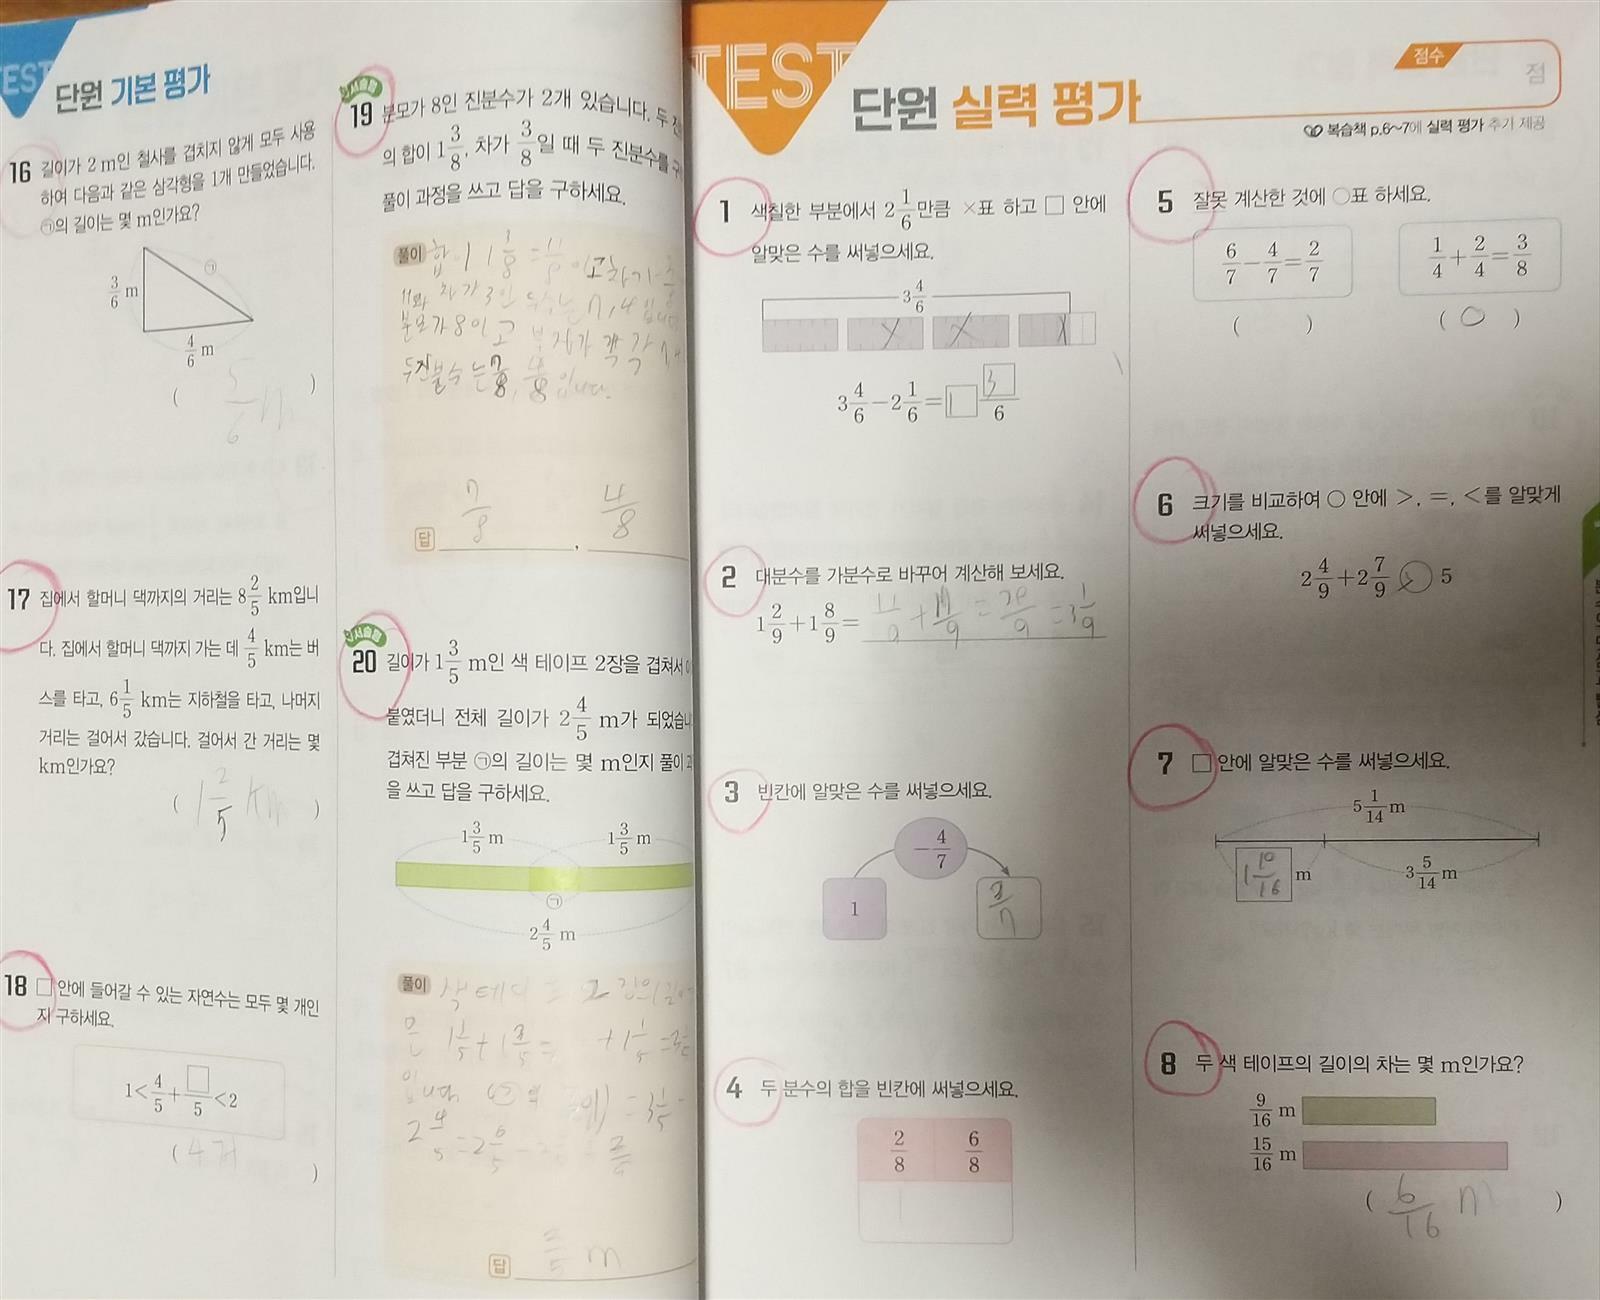 TEST
단원 기본 평가
16 길이가 2 m인 철사를 겹치지 않게 모두 사용
하여 다음과 같은 삼각형을 1개 만들었습니다.
㉠의 길이는 몇 m인가요?
㉠
3/6 m
4/6 m
( 5/6 m )
17 집에서 할머니 댁까지의 거리는 8 2/5 km입니
다. 집에서 할머니 댁까지 가는 데 4/5 km는 버
스를 타고, 6 1/5 km는 지하철을 타고, 나머지
거리는 걸어서 갔습니다. 걸어서 간 거리는 몇
km인가요?
( 1 2/5 km )
18 □ 안에 들어갈 수 있는 자연수는 모두 몇 개인
지 구하세요.
1<4/5+□/5<2
( 4개 )
서술형
19 분모가 8인 진분수가 2개 있습니다. 두
의 합이 1 3/8, 차가 3/8일 때 두 진분수를
풀이 과정을 쓰고 답을 구하세요.
풀이 합이 1 3/8 = 11/8 이고 차가
11과 차가 3인 두 수는 7, 4입니다
분모가 8이고 분자가 각각
두 진분수는 7/8, 4/8입니다.
답 7/8, 4/8
서술형
20 길이가 1 3/5 m인 색 테이프 2장을 겹쳐서
붙였더니 전체 길이가 2 4/5 m가 되었습니
겹쳐진 부분 ㉠의 길이는 몇 m인지 풀이
을 쓰고 답을 구하세요.
1 3/5 m 1 3/5 m
㉠
2 4/5 m
풀이 색 테이프 2장의 길이
은
입니다
답 m
TEST
단원 실력 평가
점수
점
복습책 p.6~7에 실력 평가 추가 제공
1 색칠한 부분에서 2 1/6만큼 ×표 하고 □ 안에
알맞은 수를 써넣으세요.
3 4/6
3 4/6-2 1/6=1 3/6
2 대분수를 가분수로 바꾸어 계산해 보세요.
1 2/9+1 8/9= 11/9 + 17/9 = 28/9 = 3 1/9
3 빈칸에 알맞은 수를 써넣으세요.
-4/7
1 3/7
4 두 분수의 합을 빈칸에 써넣으세요.
2/8 6/8
1
5 잘못 계산한 것에 ○표 하세요.
6/7-4/7=2/7 1/4+2/4=3/8
( ) ( ○ )
6 크기를 비교하여 ○ 안에 >, =, <를 알맞게
써넣으세요.
2 4/9+2 7/9 > 5
7 □ 안에 알맞은 수를 써넣으세요.
5 1/14 m
1 10/16 m 3 5/14 m
8 두 색 테이프의 길이의 차는 몇 m인가요?
9/16 m
15/16 m
( 6/16 m )